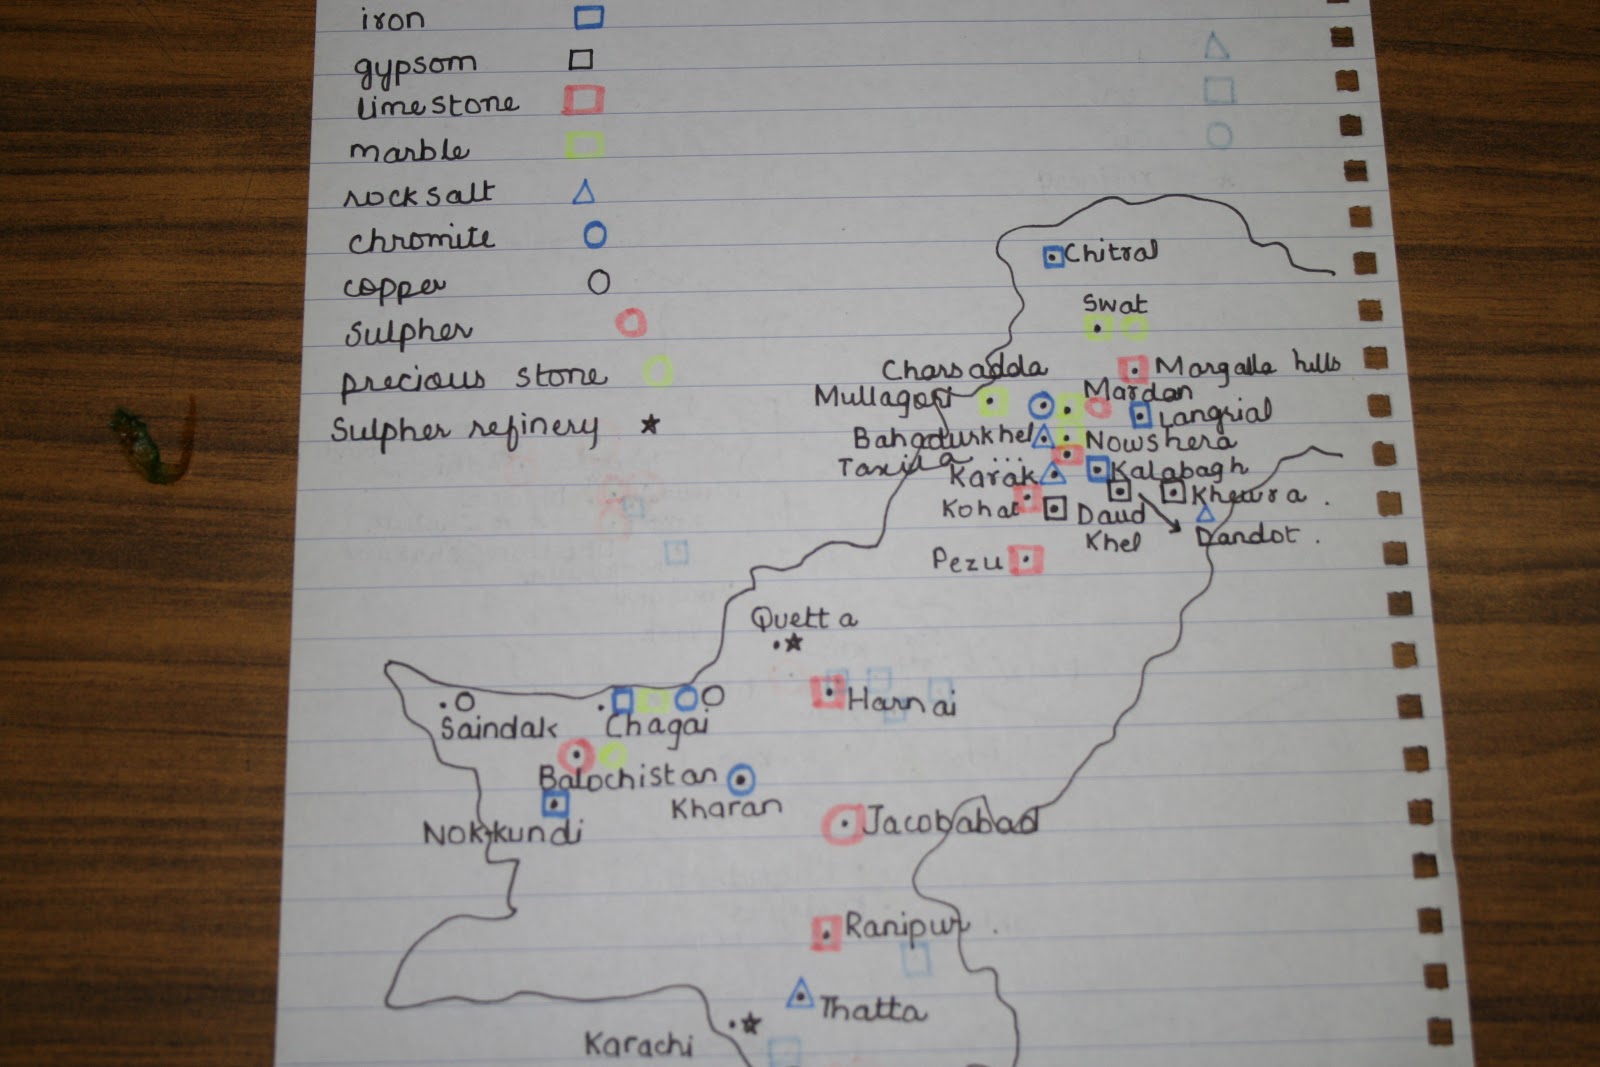 iron
gypsom
limestone
marble
rocksalt
chromite
copper
Sulpher
precious stone
Sulpher refinery
Chitral
Swat
Charsadda
Margalla hills
Mullagori
Mardan
Langrial
Bahadurkhel
Nowshera
Taxila ...
Karak
Kalabagh
Kohat
Daud
Khel
Khewra .
Dandot .
Pezu
Quetta
Saindak
Chagai
Harnai
Balochistan
Kharan
Nokkundi
Jacobabad
Ranipur .
Thatta
Karachi